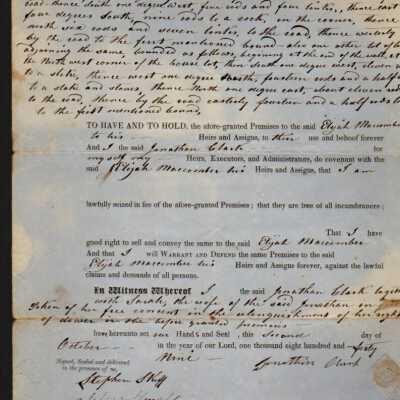 road, thence south one degree West, five rods and four links, thence East
four degrees South, nine rods to a rock, in the corner, thence
north six rods and seven links, to the road, thence westerly
by the road to the first mentioned bound also one other lot of land
adjoining the same, bounded as follows, beginning at the end of the wall, at
the North west corner of the house lot, then south one degree west, eleven
to a stake, thence west one degree North, fourteen rods and a half
to a stake and stones, thence North one degree east, about eleven rods
to the road, thence by the road easterly fourteen and a half rods to
to the first mentioned bound,
TO HAVE AND TO HOLD, the afore-granted Premises to the said Elijah Macomber
to his Heirs and Assigns, to their use and behoof forever
And I the said Jonathan Clark for
myself my Heirs, Executors, and Administrators, do covenant with the
said Elijah Maccomber his Heirs and Assigns, that I am
lawfully seized in fee of the afore-granted Premises; that they are free of all incumbrances;
That I have
good right to sell and convey the same to the said Elijah Maccomber
And that I will WARRANT and DEFEND the same Premises to the said
Elijah Maccomber his Heirs and Assigns forever, against the lawful
claims and demands of all persons.
In Witness Whereof I the said Jonathan Clark together
with Sarah, the wife of the said Jonathan in
token of her free consent in the relinquishment of her right
of dower in the before granted premises
have hereunto set our Hands and Seal, this Second day of
October in the year of our Lord, one thousand eight hundred and forty
Nine Jonathan Clark
Signed, Sealed and delivered
in the presence of us,
Stephen